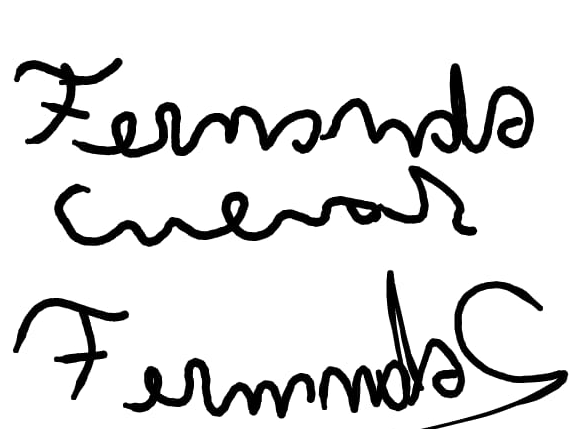 Fernanda
Cuevas
Fernanda C